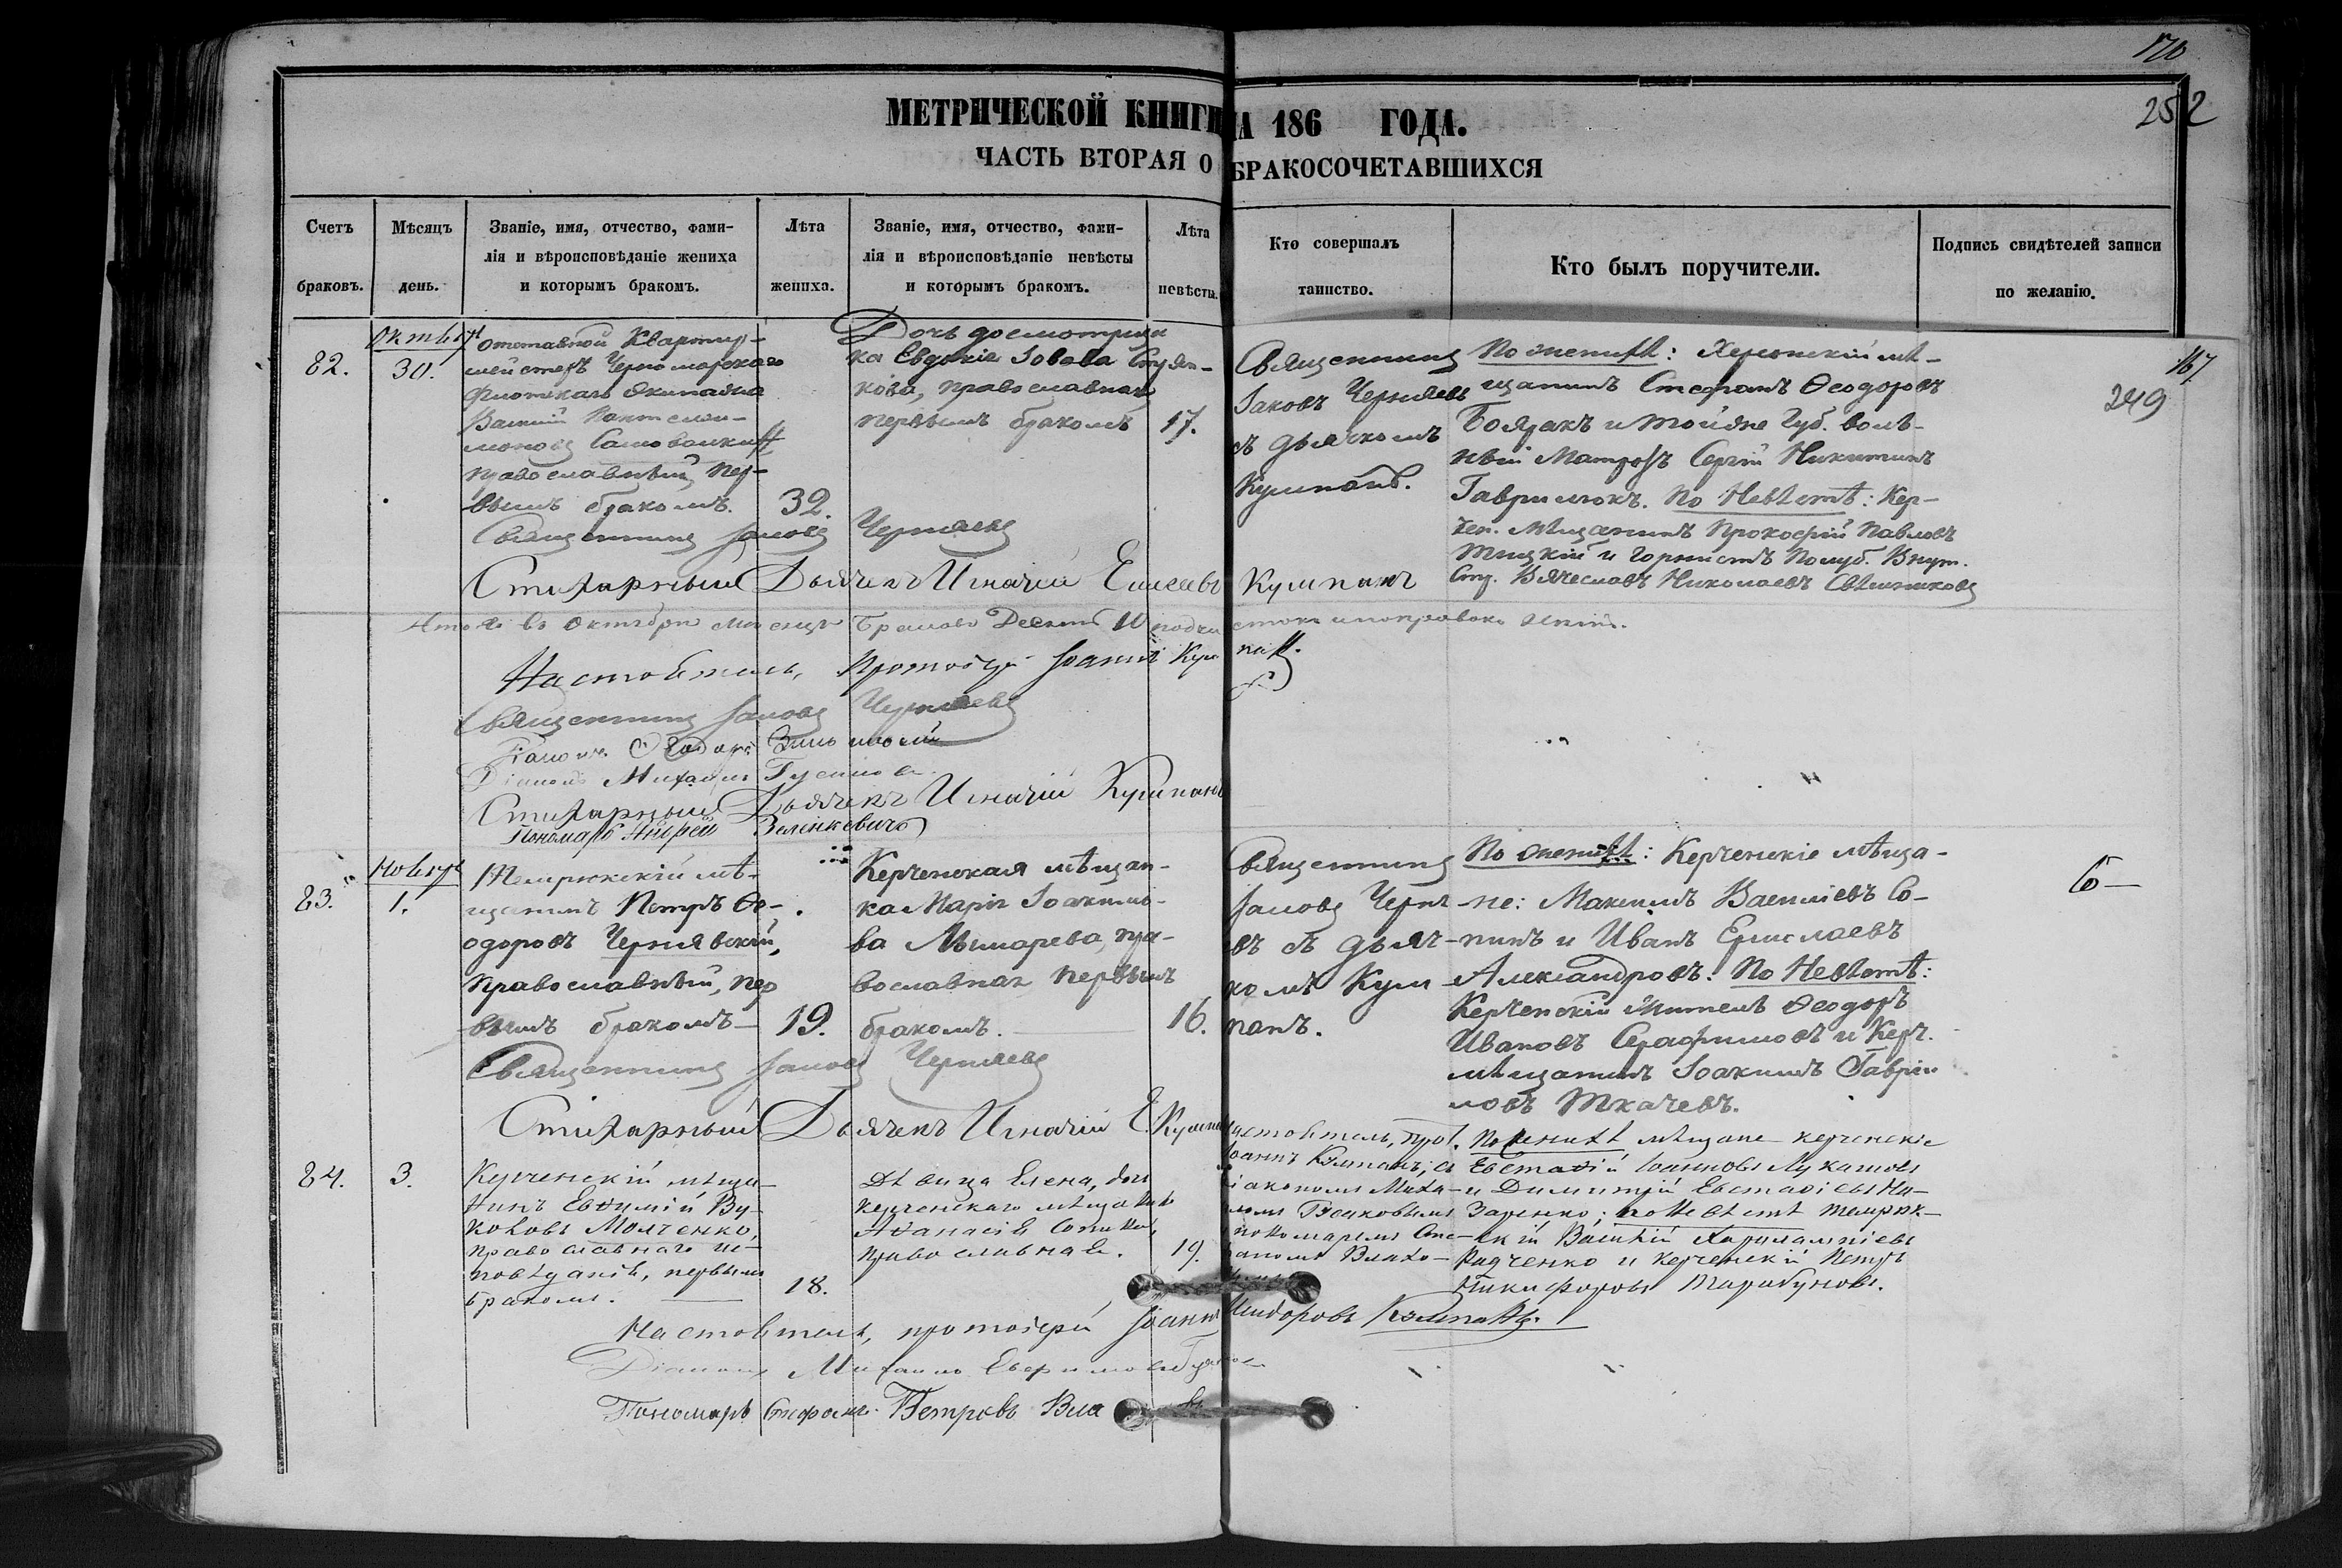 170
252
МЕТРИЧЕСКОЙ КНИГИ НА 186 ГОДА.
ЧАСТЬ ВТОРАЯ О БРАКОСОЧЕТАВШИХСЯ
Счетъ браковъ.
Мѣсяцъ день.
Званіе, имя, отчество, фами-
лія и вѣроисповѣданіе жениха
и которымъ бракомъ.
Лѣта жениха.
Званіе, имя, отчество, фами-
лія и вѣроисповѣданіе невѣсты
и которымъ бракомъ.
Лѣта невѣсты.
Кто совершалъ
таинство.
Кто былъ поручители.
Подпись свидѣтелей записи
по желанію.
167
249
82.
30.
Отставной Квартир-
мейстеръ Черноморскаго
флотскаго Экипажа
православный, пер-
вымъ бракомъ.
32.
Дочь досмотрщи
ка Евдокія
кова, православная
первымъ бракомъ
17.
Священникъ
Іаковъ Черняевъ
съ дьячкомъ
Кумпанъ.
По женихѣ: Херсонскій мѣ-
щанинъ Стефанъ Ѳеодоровъ
Боярскъ и тойже Губ. воль-
ный Матросъ Сергій Никитинъ
Гаврилюкъ. По Невѣстѣ: Кер-
чен. Мѣщанинъ Прокофій Павловъ
и горнистъ Полуб. Внут.
Стр. Вячеславъ Николаевъ
Священникъ Іаковъ Черняевъ
Стихарный Дьячекъ Игнатій Елисеевъ Кумпанъ
Настоятель, Протоіерей Іоаннъ Кумпанъ
Священникъ Іаковъ Черняевъ
Діаконъ Михаилъ Гусаковъ
Стихарный Дьячекъ Игнатій Кумпанъ
Пономарь Андрей Зеленкевичъ
83.
Ноября
1.
Темрюкскій мѣ-
щанинъ Петръ Ѳе-
одоровъ Чернявскій,
православный, пер
вымъ бракомъ
19.
Керченская мѣщан-
ка Марія Іоакимо-
ва Лымарева, пра-
вославная первымъ
бракомъ.
16.
Священникъ
Іаковъ Черня
евъ съ дьяч-
комъ Кум
панъ.
По женихѣ: Керченскіе мѣща-
не: Максимъ Василіевъ Со-
пинъ и Иванъ Ермолаевъ
Александровъ. По Невѣстѣ:
Керченскій житель Ѳеодоръ
Ивановъ Серафимовъ и Керч.
мѣщанинъ Іоакимъ Гаврі
ловъ Ткачевъ.
Священникъ Іаковъ Черняевъ
Стихарный Дьячекъ Игнатій Е. Кумпанъ
84.
3.
Керченскій мѣща-
нинъ Евѳимій Ву-
коловъ Молченко,
православнаго ис-
повѣданія, первымъ
бракомъ.
18.
Дѣвица Елена, дочь
керченскаго мѣщанина
Аѳанасія
православная.
19.
Настоятель, прот.
Іоаннъ Кумпанъ, съ
діакономъ Миха-
иломъ Гусаковымъ
пономаремъ Сте-
фаномъ Влахо-
По женихѣ мѣщане керченскіе
Евстаѳій Іоанновъ Лукашовъ
и Димитрій Евстаѳіевъ На-
заренко; по Невѣстѣ темрюк-
скій Василій Харлампіевъ
Радченко и керченскій Петръ
Никифоровъ Тарабуновъ.
Настоятель, протоіерей Іоаннъ Исидоровъ Кумпанъ.
Діаконъ Михаилъ
Пономарь Стефанъ Петровъ Влаховъ